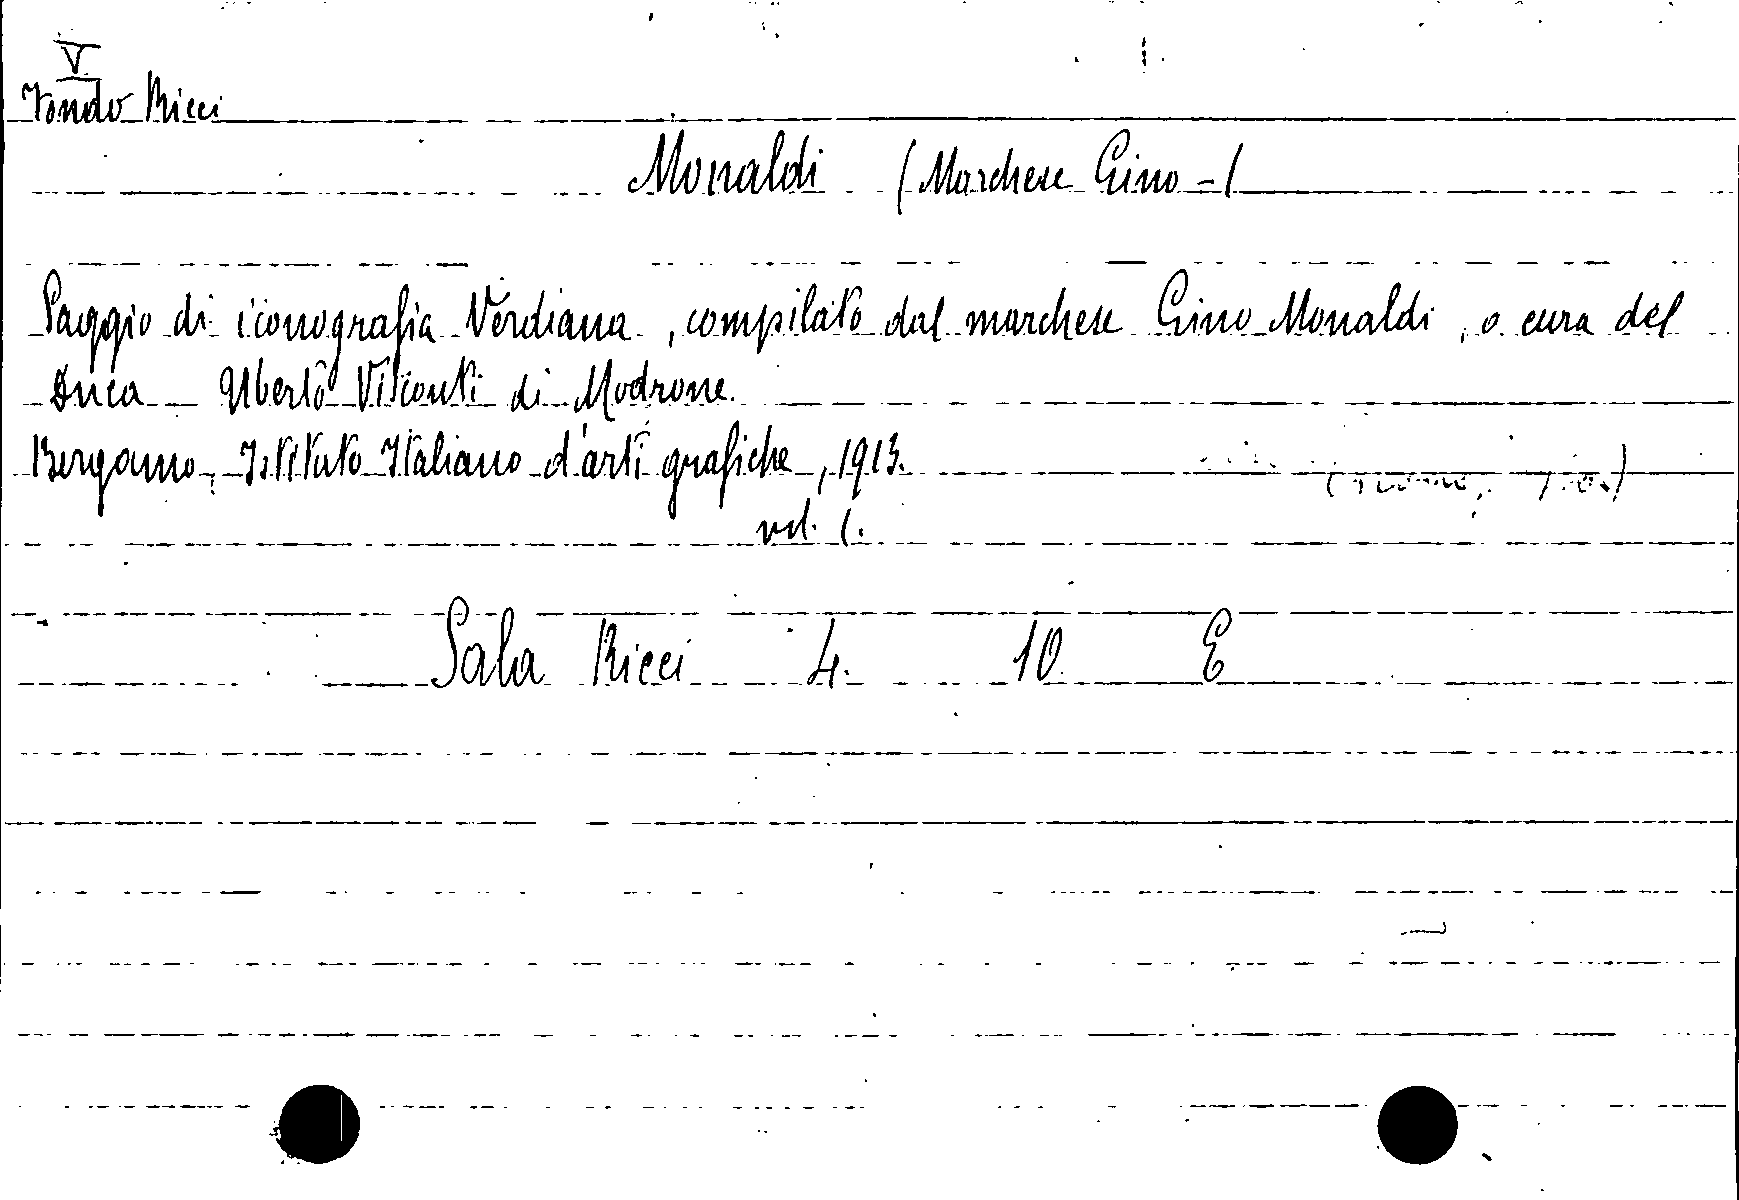 V
Fondo Ricci
Monaldi (Marchese Gino -)
Saggio di iconografia Verdiana, compilato dal marchese Gino Monaldi, a cura del
Duca Uberto Visconti di Modrone.
Bergamo, Istituto Italiano d'arti grafiche, 1913.
vol. 1.
Sala Ricci 4. 10 E